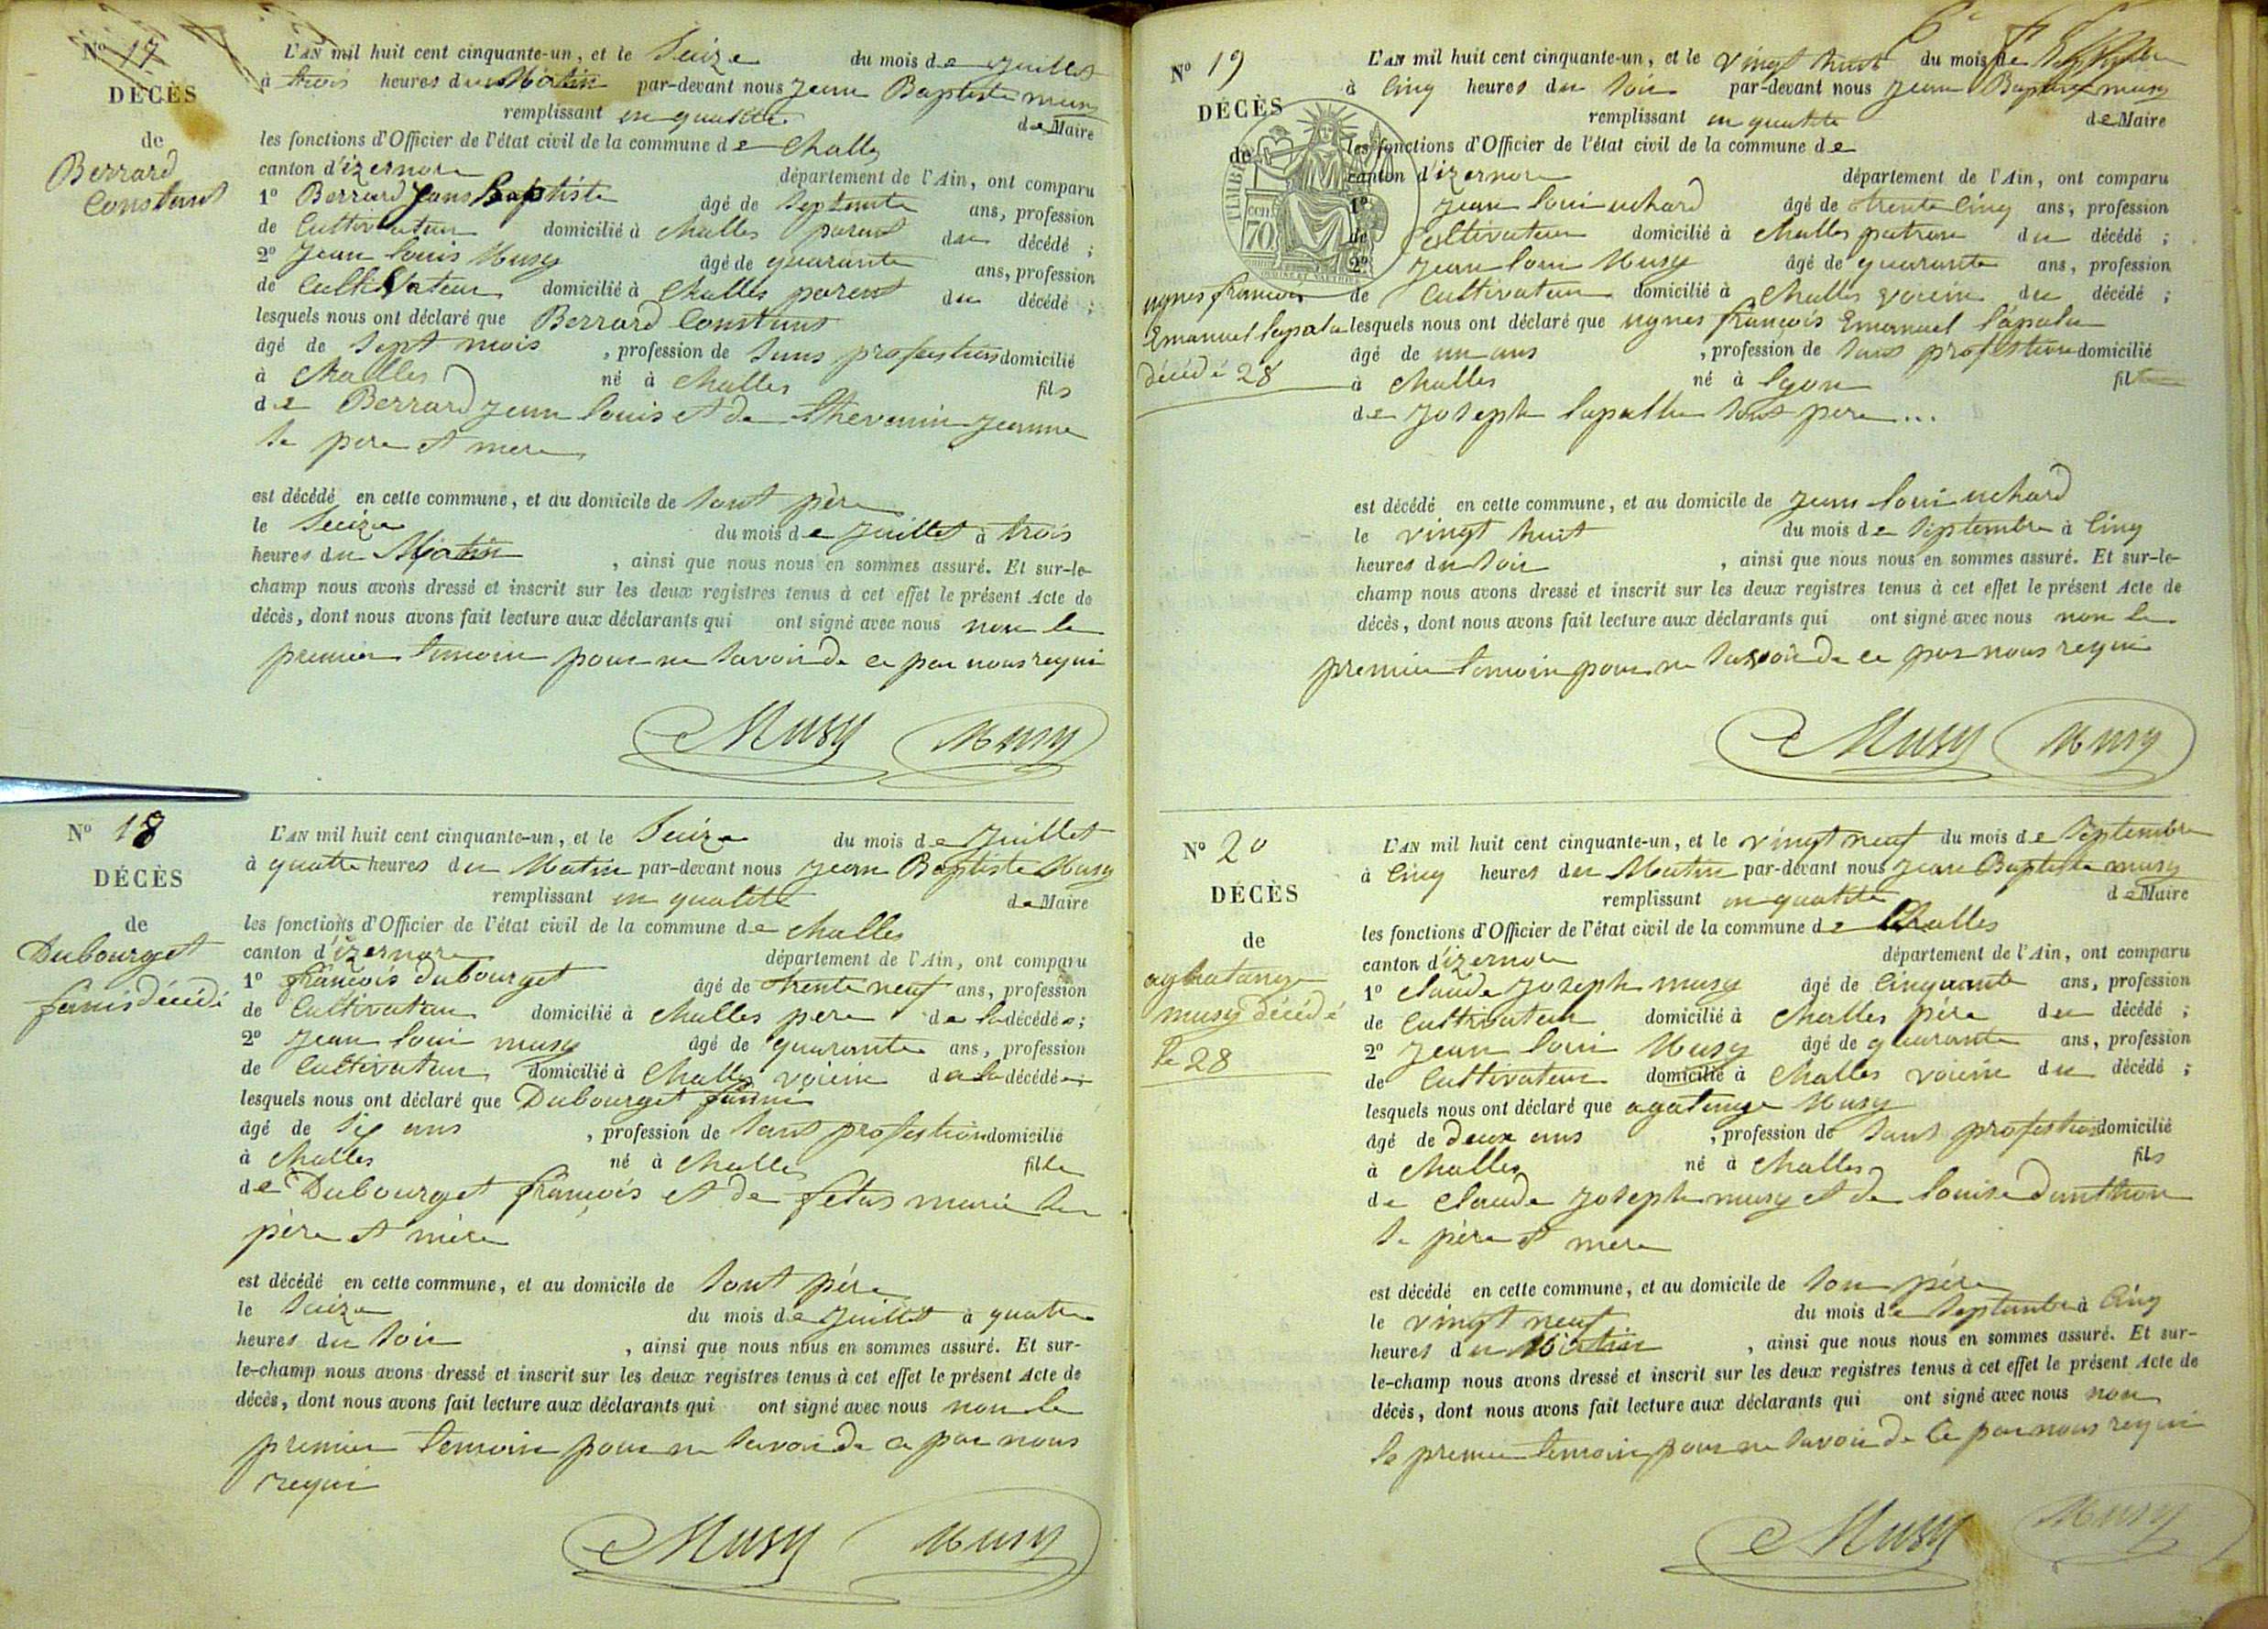 Nº 17
DÉCÈS
de
Berrard
Constant
L'AN mil huit cent cinquante-un, et le Seize du mois de juillet
à trois heures du Matin par-devant nous jean Baptiste musy
remplissant en qualité de Maire
les fonctions d'Officier de l'état civil de la commune de Challes
canton d'izernore département de l'Ain, ont comparu
1º Berrard jean Baptiste âgé de Septente ans, profession
de Cultivateur domicilié à challes parent du décédé ;
2º jean louis Musy âgé de quarante ans, profession
de Cultivateur domicilié à Challes parent du décédé ;
lesquels nous ont déclaré que Berrard Constant
âgé de Sept mois , profession de Sans profestion domicilié
à Challes né à Challes fils
de Berrard jean louis et de thevenin jeanne
Se pere et mere
est décédé en cette commune, et au domicile de Sont père
le Seize du mois de juillet à trois
heures du Matin , ainsi que nous nous en sommes assuré. Et sur-le-
champ nous avons dressé et inscrit sur les deux registres tenus à cet effet le présent Acte de
décès, dont nous avons fait lecture aux déclarants qui ont signé avec nous non le
premier temoin pour ne Savoir de ce par nous requi
Musy Musy
Nº 18
DÉCÈS
de
Dubourget
L'AN mil huit cent cinquante-un, et le Seize du mois de Juillet
à quatre heures du Matin par-devant nous jean Baptiste Musy
remplissant en qualité de Maire
les fonctions d'Officier de l'état civil de la commune de Challes
canton d'izernore département de l'Ain, ont comparu
1º françois Dubourget âgé de trente neuf ans, profession
de Cultivateur domicilié à Challes pere de la décédée ;
2º jean loui musy âgé de quarante ans, profession
de Cultivateur domicilié à Challes voicin de la décédée ;
lesquels nous ont déclaré que Dubourget
âgé de Six ans , profession de Sant profestion domicilié
à Challes né à Challes fille
de Dubourget françois et de fetas marie Se
père et mère
est décédé en cette commune, et au domicile de Sont père
le Seize du mois de juillet à quatre
heures du Soir , ainsi que nous nous en sommes assuré. Et sur-
le-champ nous avons dressé et inscrit sur les deux registres tenus à cet effet le présent Acte de
décès, dont nous avons fait lecture aux déclarants qui ont signé avec nous non le
premier temoin pour ne Savoir de ce par nous
requi
Musy Musy
Nº 19
DÉCÈS
de
ugnes francois
Emanuel lapalu
décédé 28
L'AN mil huit cent cinquante-un, et le vingt huit du mois de Septembre
à Cinq heures du Soir par-devant nous jean Baptiste musy
remplissant en qualité de Maire
les fonctions d'Officier de l'état civil de la commune de
canton d'izernore département de l'Ain, ont comparu
1º jean loui uchard âgé de trente Cinq ans, profession
de Cultivateur domicilié à Challes patron du décédé ;
2º jean loui Musy âgé de quarante ans, profession
de Cultivateur domicilié à Challes voicin du décédé ;
lesquels nous ont déclaré que ugnes françois Emanuel lapalu
âgé de un ans , profession de Sans profestion domicilié
à Challes né à lyon fils
de joseph lapallu Sont pere ...
est décédé en cette commune, et au domicile de jean loui uchard
le vingt huit du mois de Septembre à Cinq
heures du Soir , ainsi que nous nous en sommes assuré. Et sur-le-
champ nous avons dressé et inscrit sur les deux registres tenus à cet effet le présent Acte de
décès, dont nous avons fait lecture aux déclarants qui ont signé avec nous non le
premier temoin pour ne Savoir de ce par nous requi
Musy Musy
Nº 20
DÉCÈS
de
musy décédé
le 28
L'AN mil huit cent cinquante-un, et le vingt neuf du mois de Septembre
à Cinq heures du Matin par-devant nous jean Baptiste musy
remplissant en qualité de Maire
les fonctions d'Officier de l'état civil de la commune de Challes
canton d'izernore département de l'Ain, ont comparu
1º Claude Joseph musy âgé de Cinquante ans, profession
de Cultivateur domicilié à Challes père du décédé ;
2º jean loui Musy âgé de quarante ans, profession
de Cultivateur domicilié à Challes voicin du décédé ;
lesquels nous ont déclaré que agatange Musy
âgé de deux ans , profession de Sans profestion domicilié
à Challes né à Challes fils
de Claude joseph musy et de louise Danthon
Se père et mere
est décédé en cette commune, et au domicile de Son père
le vingt neuf du mois de Septembre à Cinq
heures du Matin , ainsi que nous nous en sommes assuré. Et sur-
le-champ nous avons dressé et inscrit sur les deux registres tenus à cet effet le présent Acte de
décès, dont nous avons fait lecture aux déclarants qui ont signé avec nous non
le premier temoin pour ne Savoir de Ce par nous requi
Musy Musy